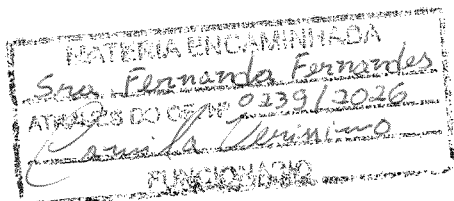 MATÉRIA ENCAMINHADA
Sra. Fernanda Fernandes
ATRAVÉS DO OF. Nº 0239/2026
Camila
FUNCIONÁRIO